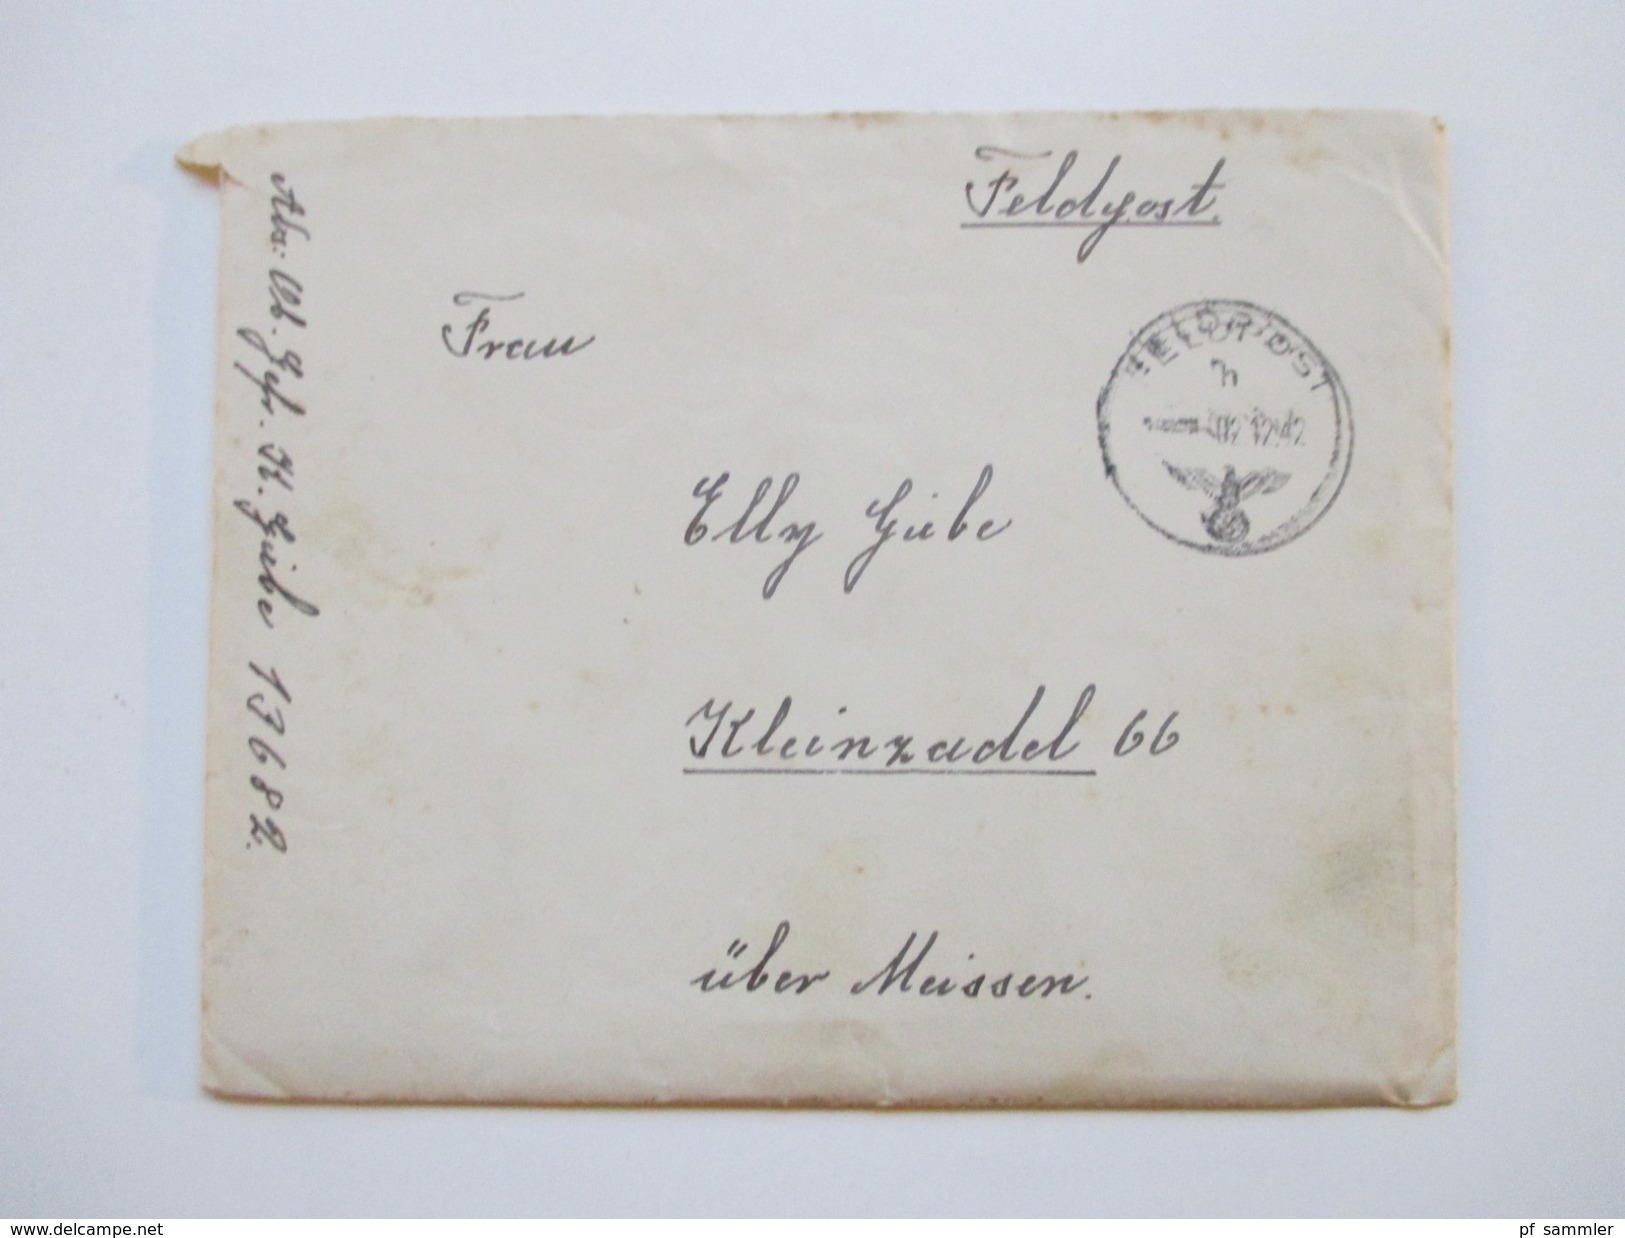 Feldpost.
FELDPOST
Frau
Elly Gübe
Kleinzadel 66
über Meissen.
Abs: Ob. Gefr. K. Gübe 13682.
www.delcampe.net
pf_sammler